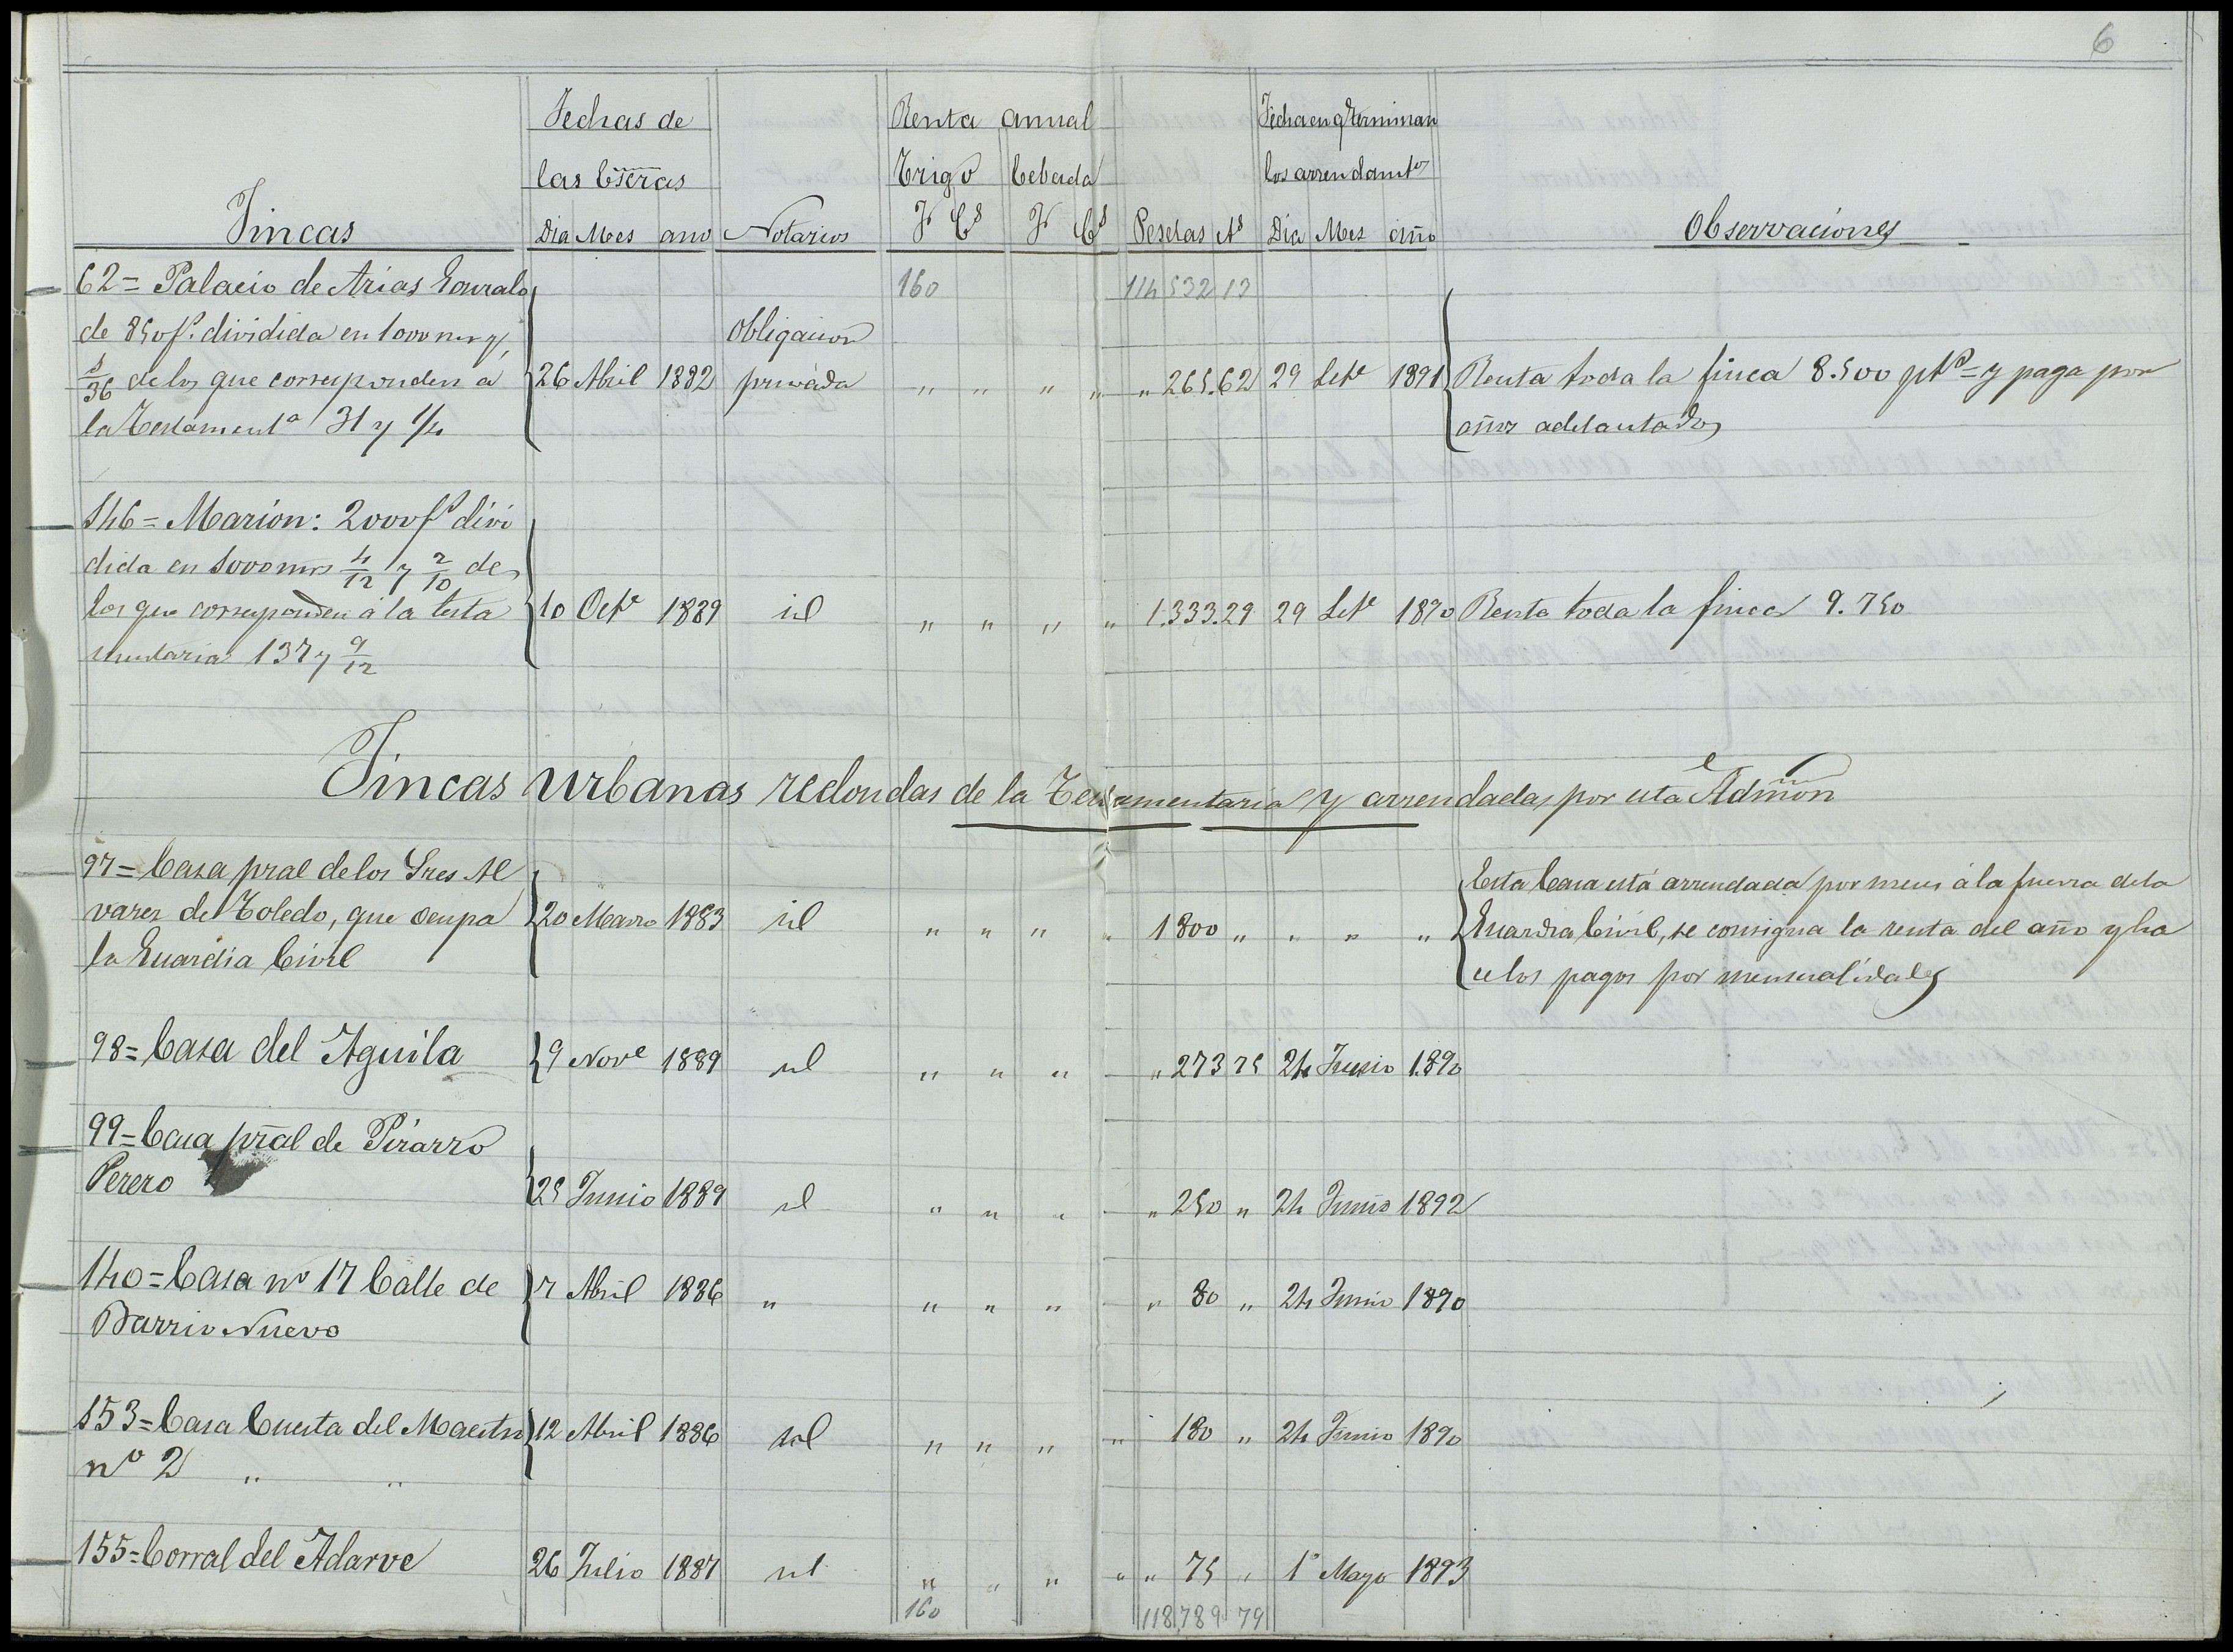 6
Fechas de Renta anual Fecha en q terminan
las Escras Trigo Cebada los arrendamtos
Fincas Dia Mes ano Notarios Fs Cs Fs Cs Pesetas Cs Dia Mes año Observaciones
62= Palacio de Arias Gonzalo 160 114532 13
de 850 fs. dividida en 1000 mrs y, Obligacion
8/36 de los que corresponden a 26 Abril 1882 privada " " " " " 265.62 29 Sete 1891 Renta toda la finca 8.500 pts = y paga por
la Testamenta 31 y 1/4 años adelantados
146= Marion: 2000 fs divi
dida en 1000 mrs 4/12 y 2/10 de
los que corresponden á la testa 10 Octe 1889 id " " " " 1.333.29 29 Sete 1890 Renta toda la finca 9.750
mentaria 137 y 9/12
Fincas urbanas redondas de la Testamentaria y arrendadas por esta Admon
97= Casa pral de los Sres Al Esta Casa está arrendada por meses á la fuerza de la
varez de Toledo, que ocupa 20 Marzo 1883 id " " " " 1800 " " " " Guardia Civil, se consigna la renta del año y ha
la Guardia Civil ce los pagos por mensualidades
98= Casa del Aguila 9 Nove 1889 id " " " " 273 75 24 Junio 1890
99= Casa pral de Pizarro
Perero 25 Junio 1889 id " " " " 250 " 24 Junio 1892
140= Casa no 17 Calle de 7 Abril 1886 " " " " " 80 " 24 Junio 1890
Barrio Nuevo
153= Casa Cuesta del Maestro 12 Abril 1886 id " " " " 180 " 24 Junio 1890
no 2 " "
155= Corral del Adarve 26 Julio 1887 id " " " " " 75 " 1o Mayo 1893
160 118,789 79